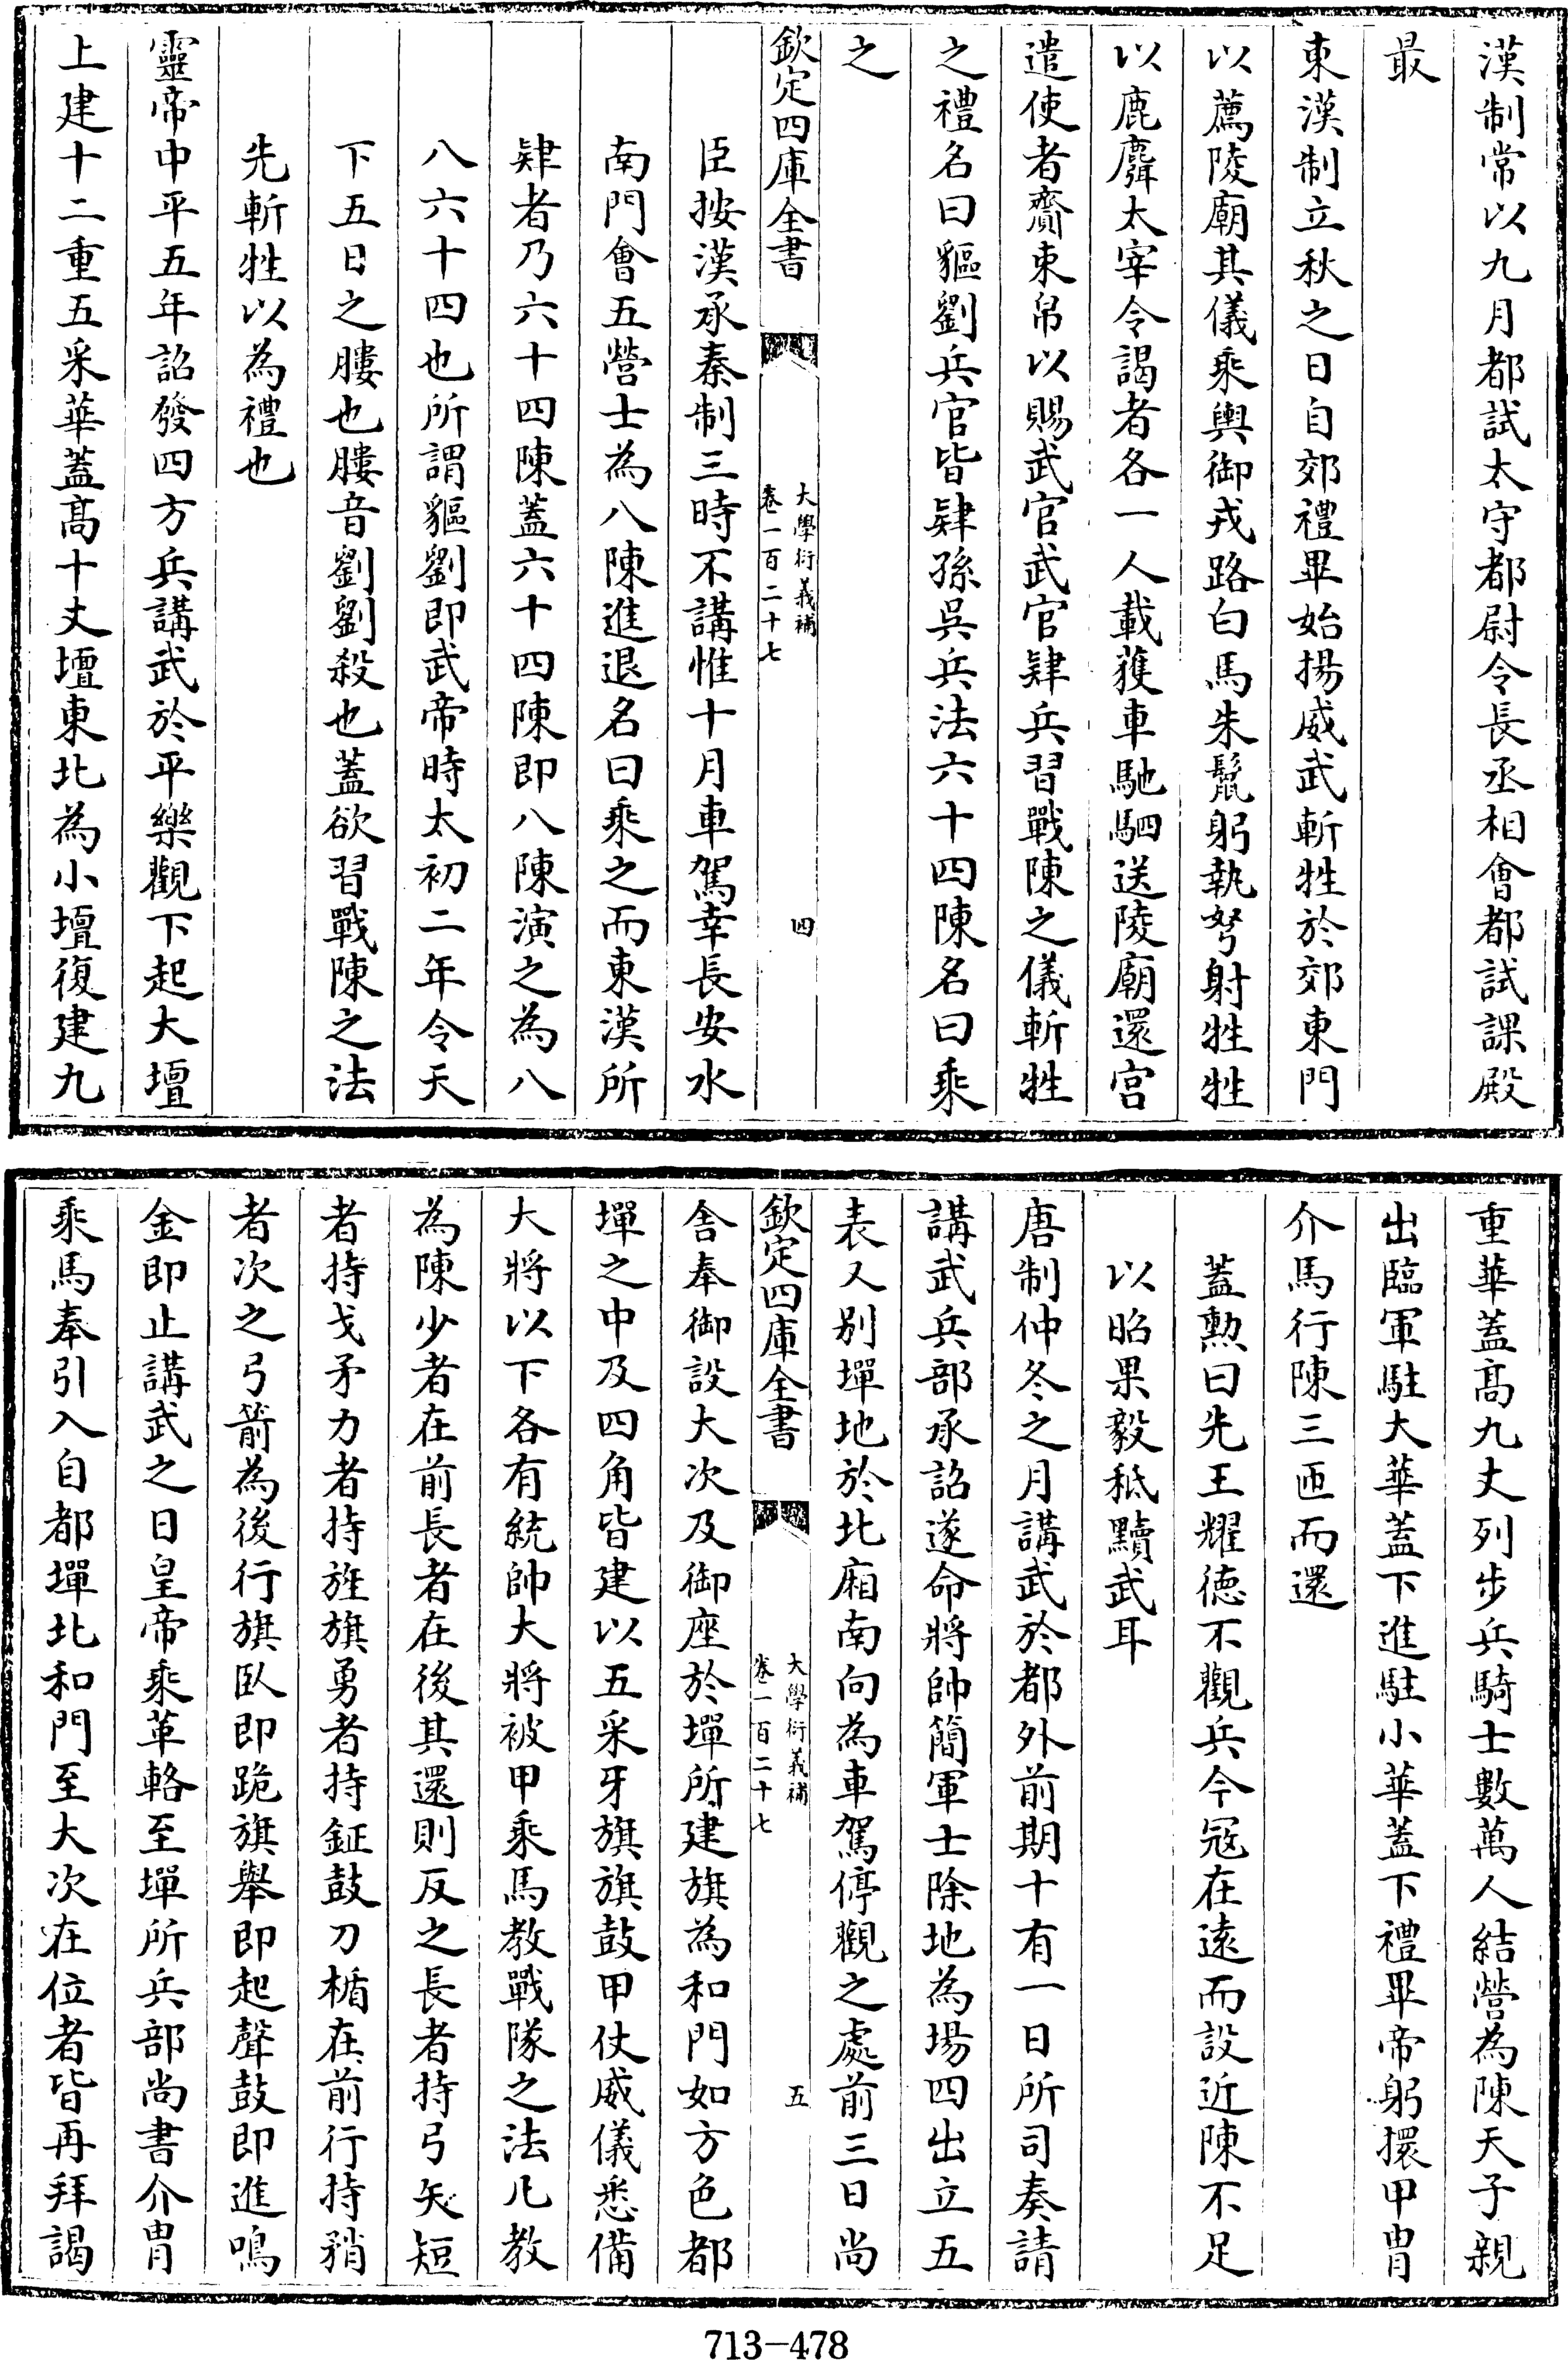 漢制常以九月都試太守都尉令長丞相會都試課殿
最
東漢制立秋之日自郊禮畢始揚威武斬牲於郊東門
以薦陵廟其儀乘輿御戎路白馬朱鬛躬執弩射牲牲
以鹿麛太宰令謁者各一人載獲車馳駟送陵廟還宫
遣使者齎束帛以賜武官武官肄兵習戰陳之儀斬牲
之禮名曰貙劉兵官皆肄孫吳兵法六十四陳名曰乘
之
欽定四庫全書
大學衍義補
卷一百二十七
四
臣按漢承秦制三時不講惟十月車駕幸長安水
南門會五營士為八陳進退名曰乘之而東漢所
肄者乃六十四陳蓋六十四陳即八陳演之為八
八六十四也所謂貙劉即武帝時太初二年令天
下五日之膢也膢音劉劉殺也蓋欲習戰陳之法
先斬牲以為禮也
靈帝中平五年詔發四方兵講武於平樂觀下起大壇
上建十二重五采華蓋髙十丈壇東北為小壇復建九
重華蓋髙九丈列步兵騎士數萬人結營為陳天子親
出臨軍駐大華蓋下進駐小華蓋下禮畢帝躬擐甲胄
介馬行陳三匝而還
蓋勲曰先王耀徳不觀兵今冦在逺而設近陳不足
以昭果毅秪黷武耳
唐制仲冬之月講武於都外前期十有一日所司奏請
講武兵部承詔遂命將帥簡軍士除地為場四出立五
表又别墠地於北廂南向為車駕停觀之處前三日尚
欽定四庫全書
大學衍義補
卷一百二十七
五
舍奉御設大次及御座於墠所建旗為和門如方色都
墠之中及四角皆建以五采牙旗旗鼓甲仗威儀悉備
大將以下各有統帥大將被甲乘馬教戰隊之法凡教
為陳少者在前長者在後其還則反之長者持弓矢短
者持戈矛力者持旌旗勇者持鉦鼓刀楯在前行持矟
者次之弓箭為後行旗臥即跪旗舉即起聲鼓即進鳴
金即止講武之日皇帝乘革輅至墠所兵部尚書介胄
乘馬奉引入自都墠北和門至大次在位者皆再拜謁
713-478